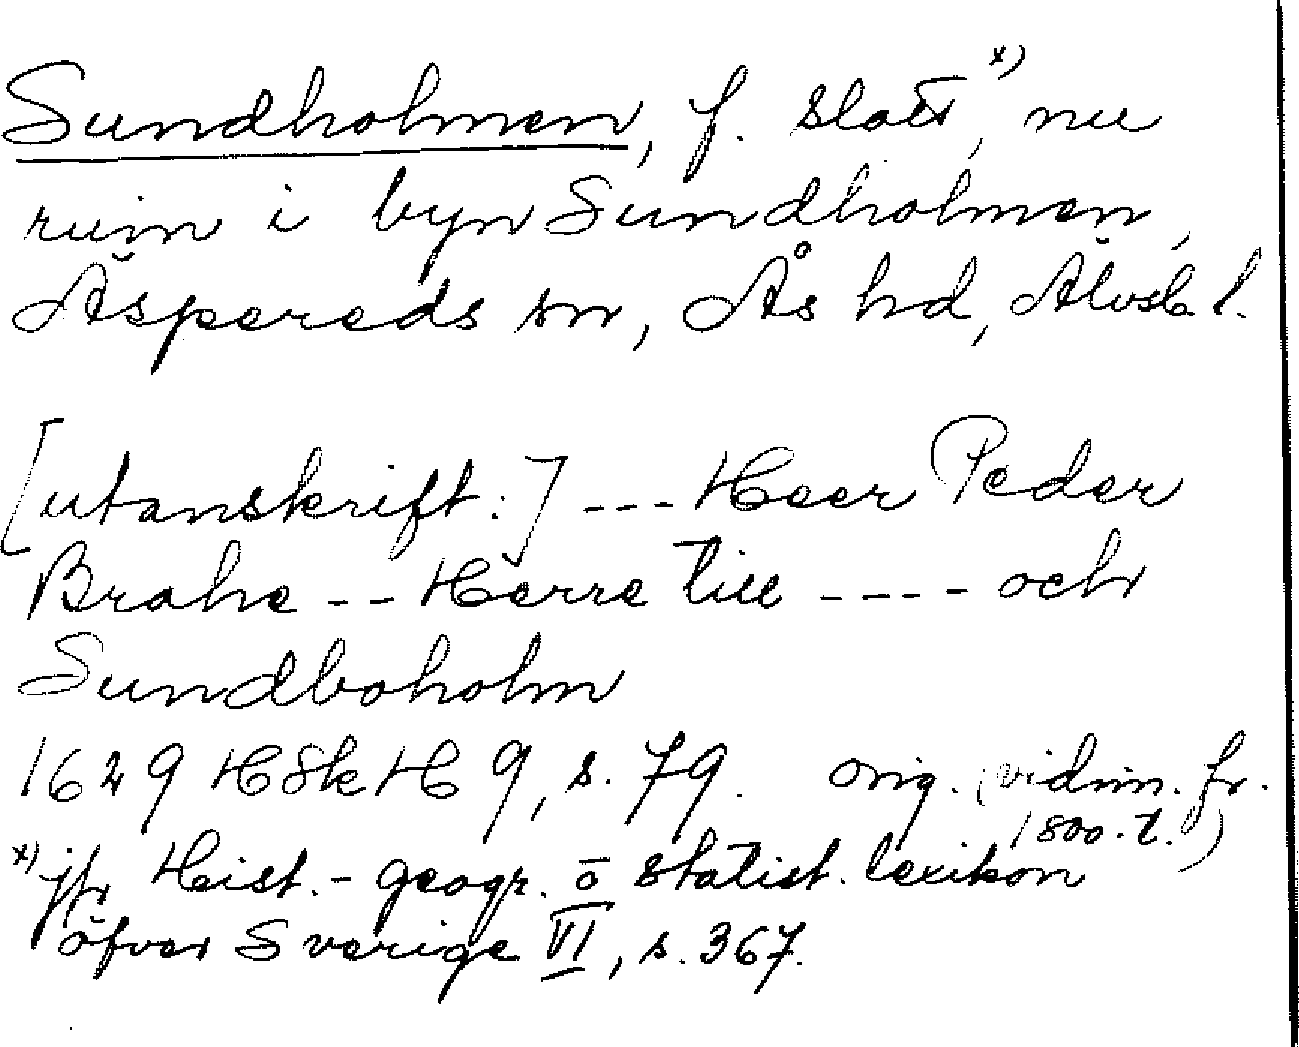 Sundholmen, f. slott x), nu
ruin i byn Sundholmen,
Äspereds sn, Ås hd, Älvsb l.
[utanskrift:] --- Heer Peder
Brahe -- Herre till ---- och
Sundboholm
1629 HSkH 9, s. 79. orig. (vidim. fr.
1800-t.)
x) jfr Hist.-geogr. o statist. lexikon
öfver Sverige VI, s. 367.